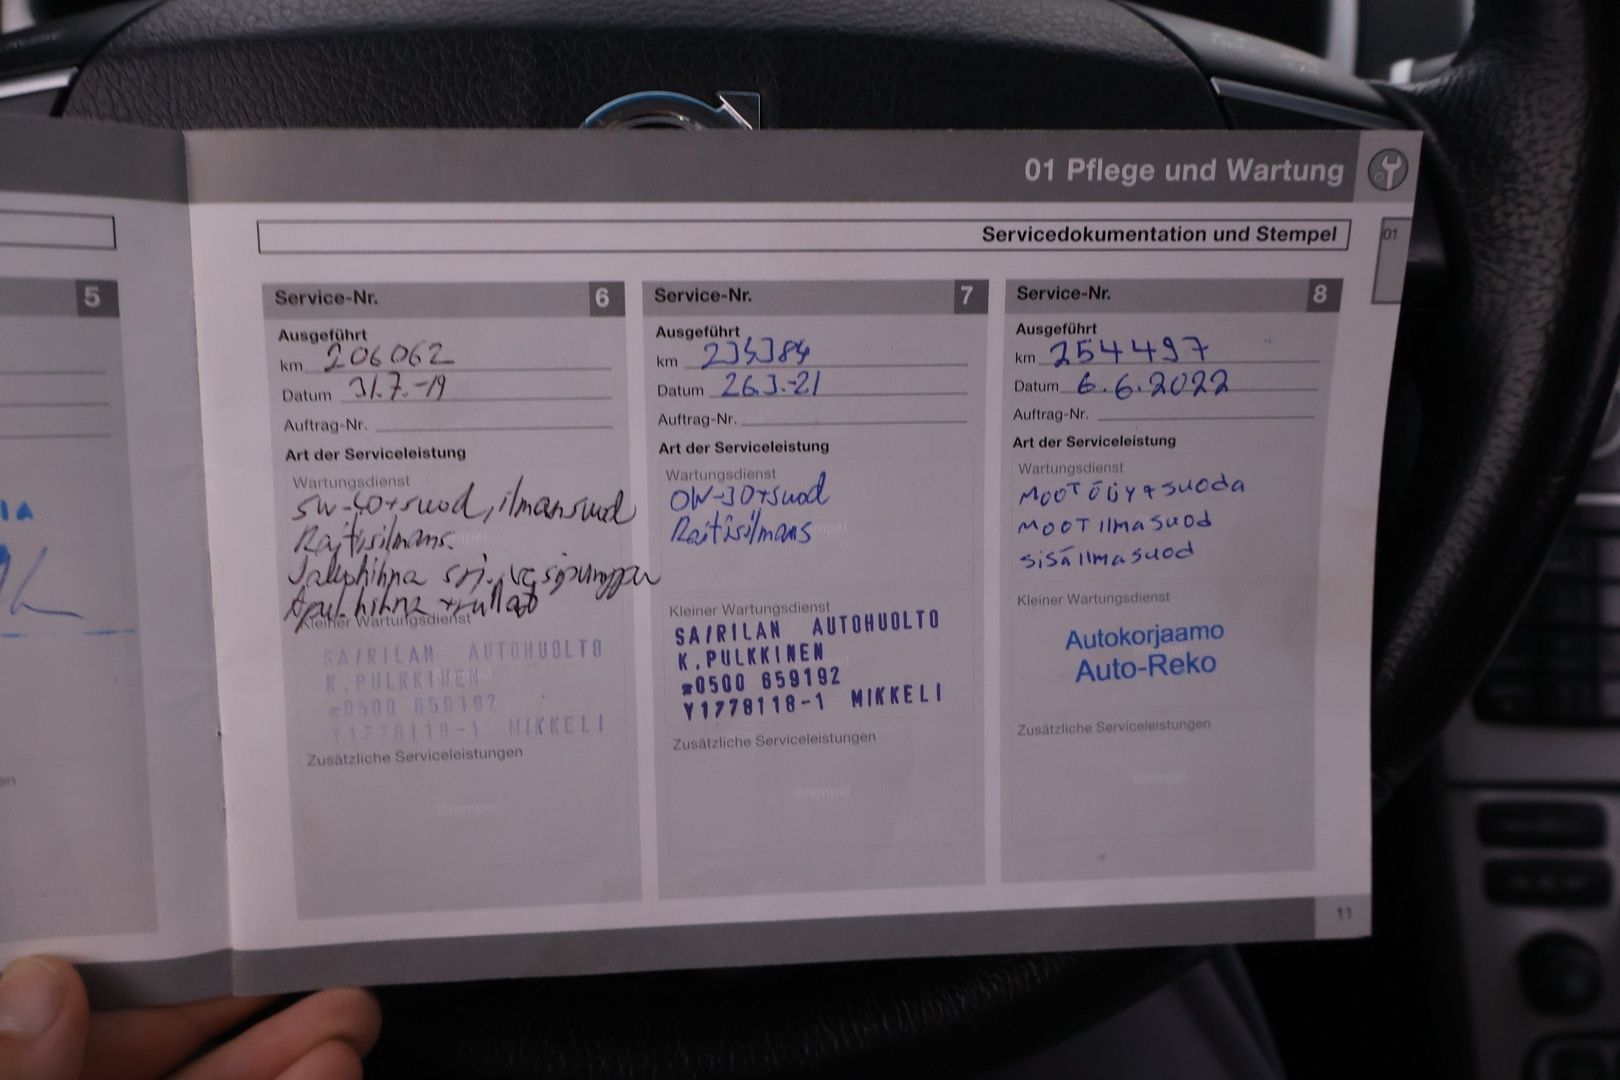 01 Pflege und Wartung
Servicedokumentation und Stempel
01
5
Service-Nr. 6
Ausgeführt
km 206062
Datum 31.7.-19
Auftrag-Nr.
Art der Serviceleistung
Wartungsdienst
5W-40+suod, ilmansuod
Raitisilmans.
Jakohihna srj. vesipumppu
Apul.hihna +rullat
Kleiner Wartungsdienst
SA/RILAN AUTOHUOLTO
K.PULKKINEN
0500 659192
Y1778118-1 MIKKELI
Zusätzliche Serviceleistungen
Stempel
Service-Nr. 7
Ausgeführt
km 235384
Datum 26.3.-21
Auftrag-Nr.
Art der Serviceleistung
Wartungsdienst
0W-30+suod
Raitisilmans
Kleiner Wartungsdienst
SA/RILAN AUTOHUOLTO
K.PULKKINEN
0500 659192
Y1778118-1 MIKKELI
Zusätzliche Serviceleistungen
Stempel
Service-Nr. 8
Ausgeführt
km 254497
Datum 6.6.2022
Auftrag-Nr.
Art der Serviceleistung
Wartungsdienst
MOOTÖLJY+SUODA
MOOT ILMASUOD
SISÄILMASUOD
Kleiner Wartungsdienst
Autokorjaamo
Auto-Reko
Zusätzliche Serviceleistungen
Stempel
11